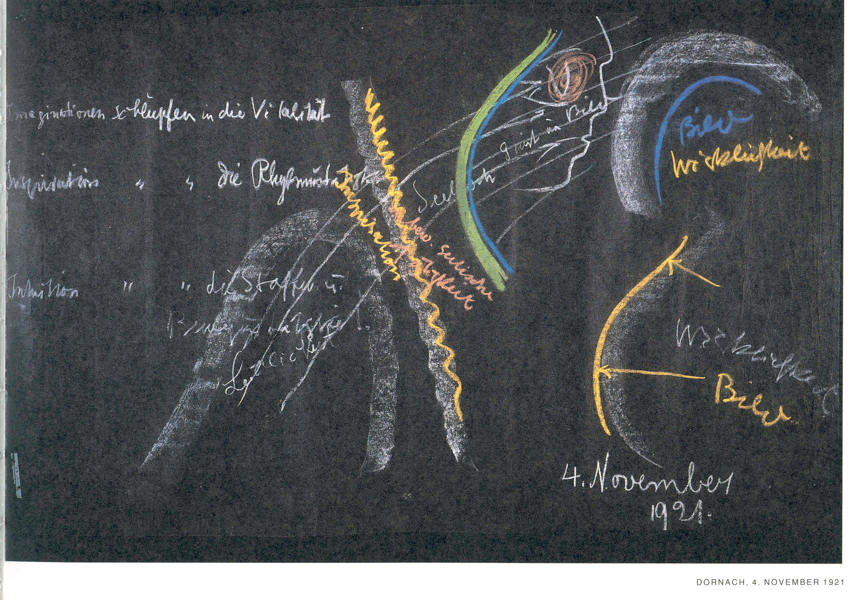 Imaginationen schlüpfen in die Vitalität
Inspiration " " die
Intuition " " die Stoffe u.
Leiblich
Inspiration
Seelisch
Geist im Bild
Bild
Wirklichkeit
Wirklichkeit
Bild
4. November
1921.
DORNACH, 4. NOVEMBER 1921